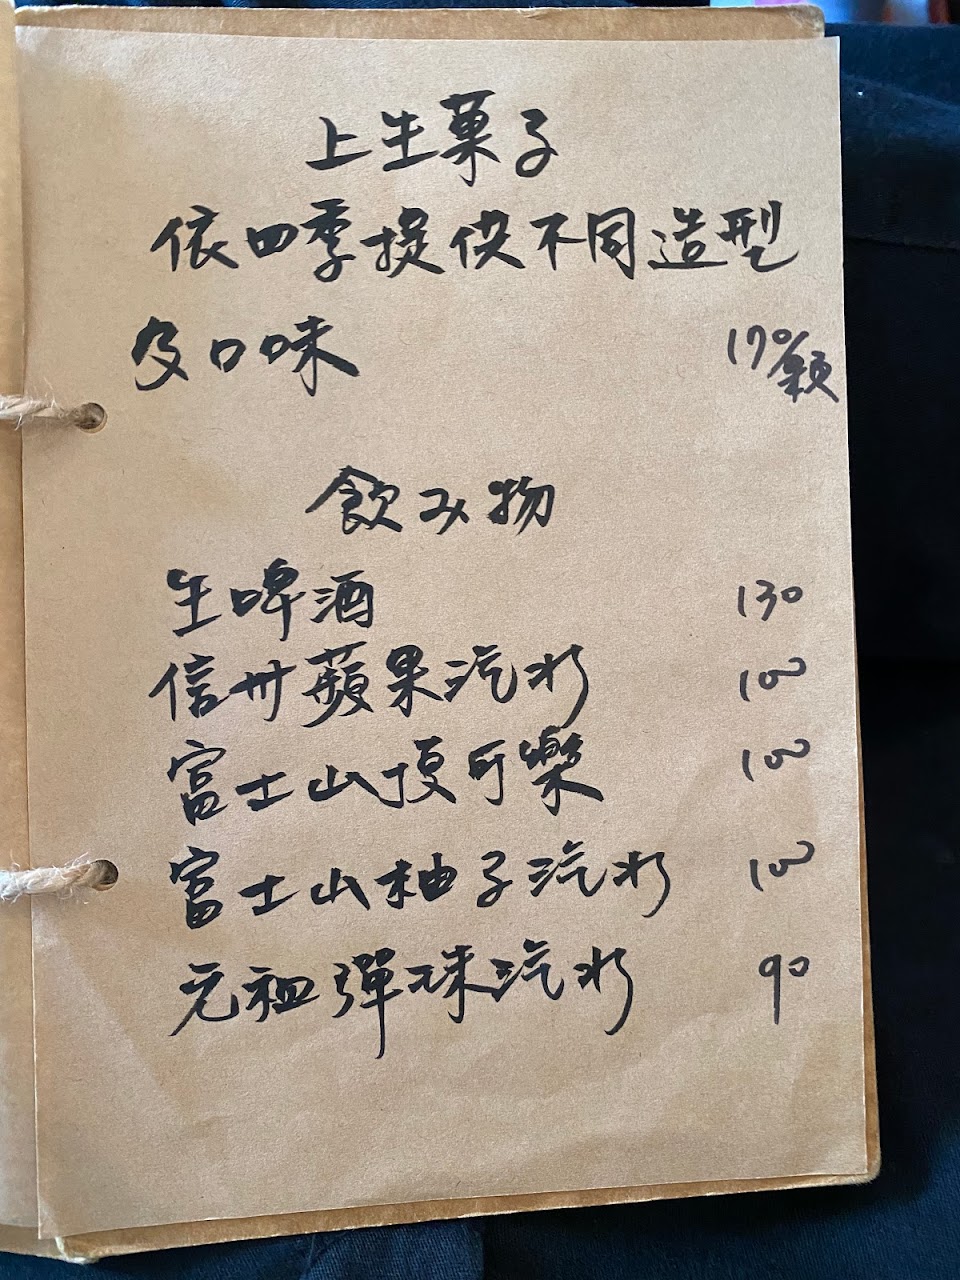 上生菓子
依四季提供不同造型
及口味 170/顆
飲み物
生啤酒 130
信州蘋果汽水 100
富士山頂可樂 100
富士山柚子汽水 100
元祖彈珠汽水 90